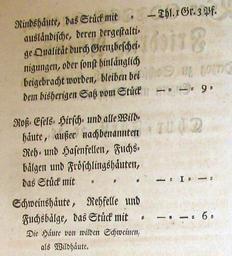 Rindshäute, das Stück mit — Thl. 1 Gr. 3 Pf.
ausländische, deren dergestalti-
ge Qualität durch Grenzbeschei-
nigungen, oder sonst hinlänglich
beigebracht worden, bleiben bei
dem bisherigen Satz vom Stück — = — = 9 =
Roß- Esels- Hirsch- und alle Wild-
häute, außer nachbenannten
Reh- und Hasenfellen, Fuchs-
bälgen und Fröschlingshäuten,
das Stück mit = = = — = 1 = — =
Schweinshäute, Rehfelle und
Fuchsbälge, das Stück mit = — = — = 6 =
Die Häute von wilden Schweinen,
als Wildhäute.